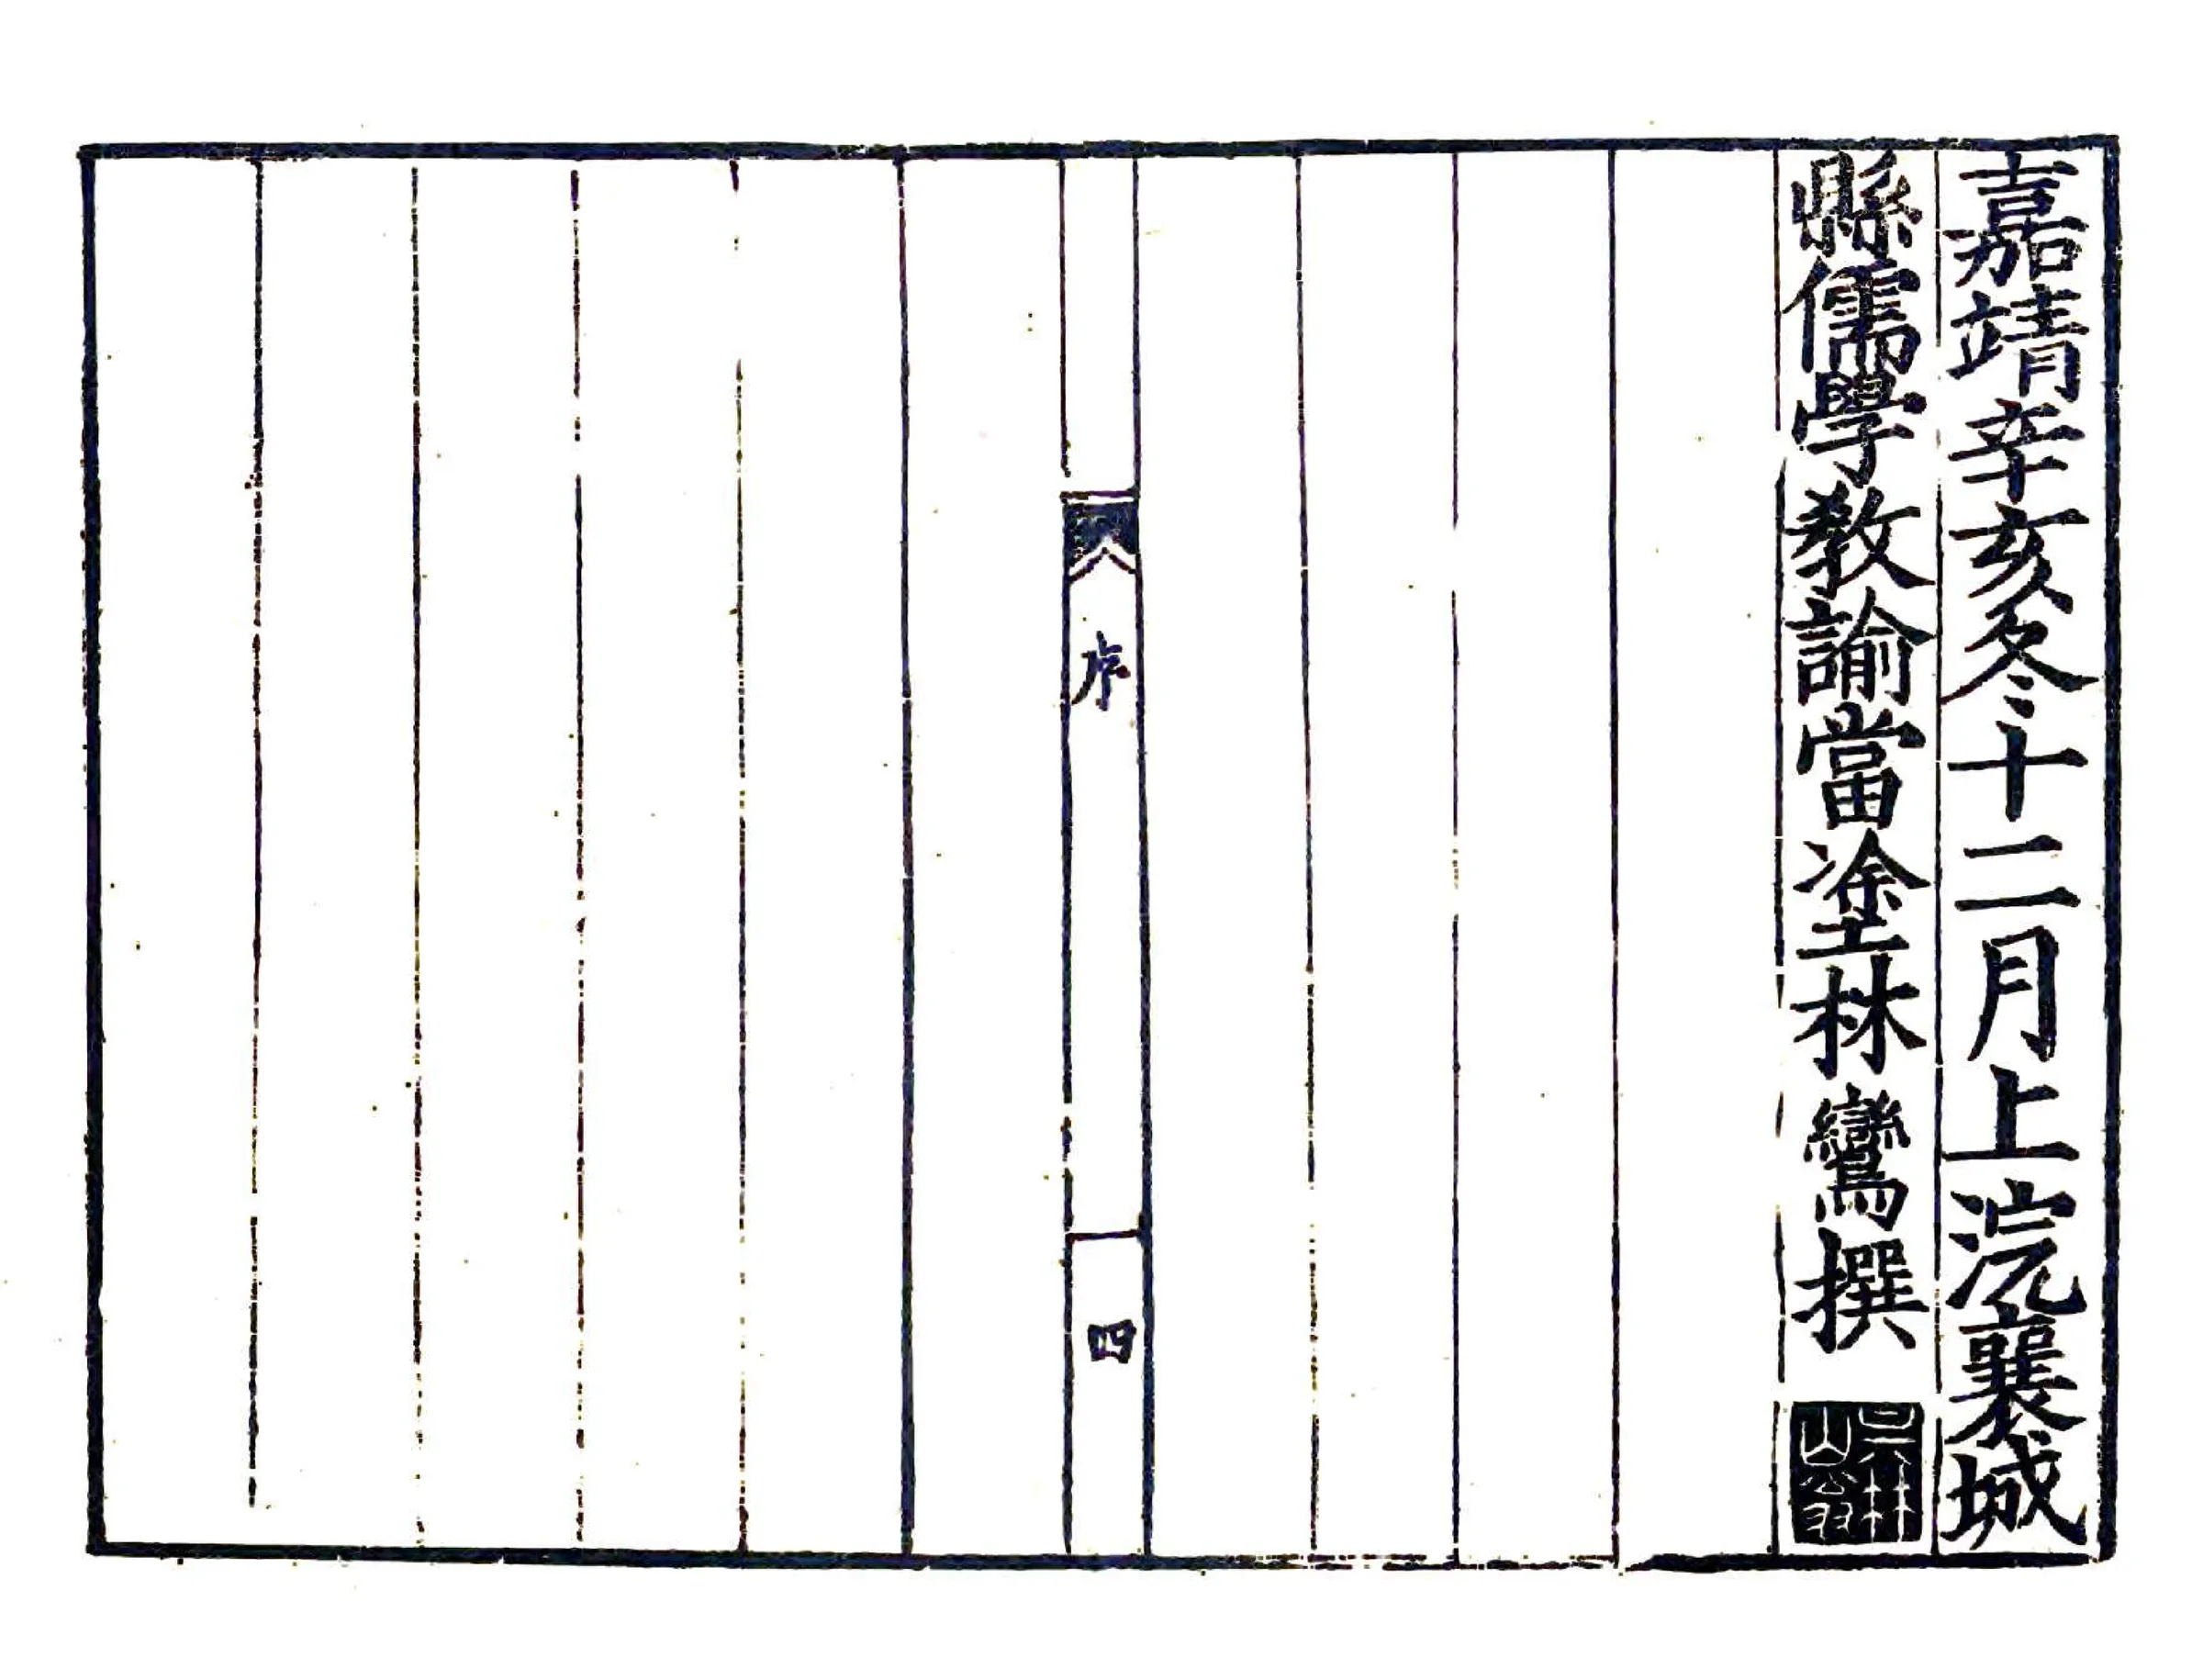 嘉靖辛亥冬十二月上浣襄城
縣儒學教諭當塗林鸞撰
序
四